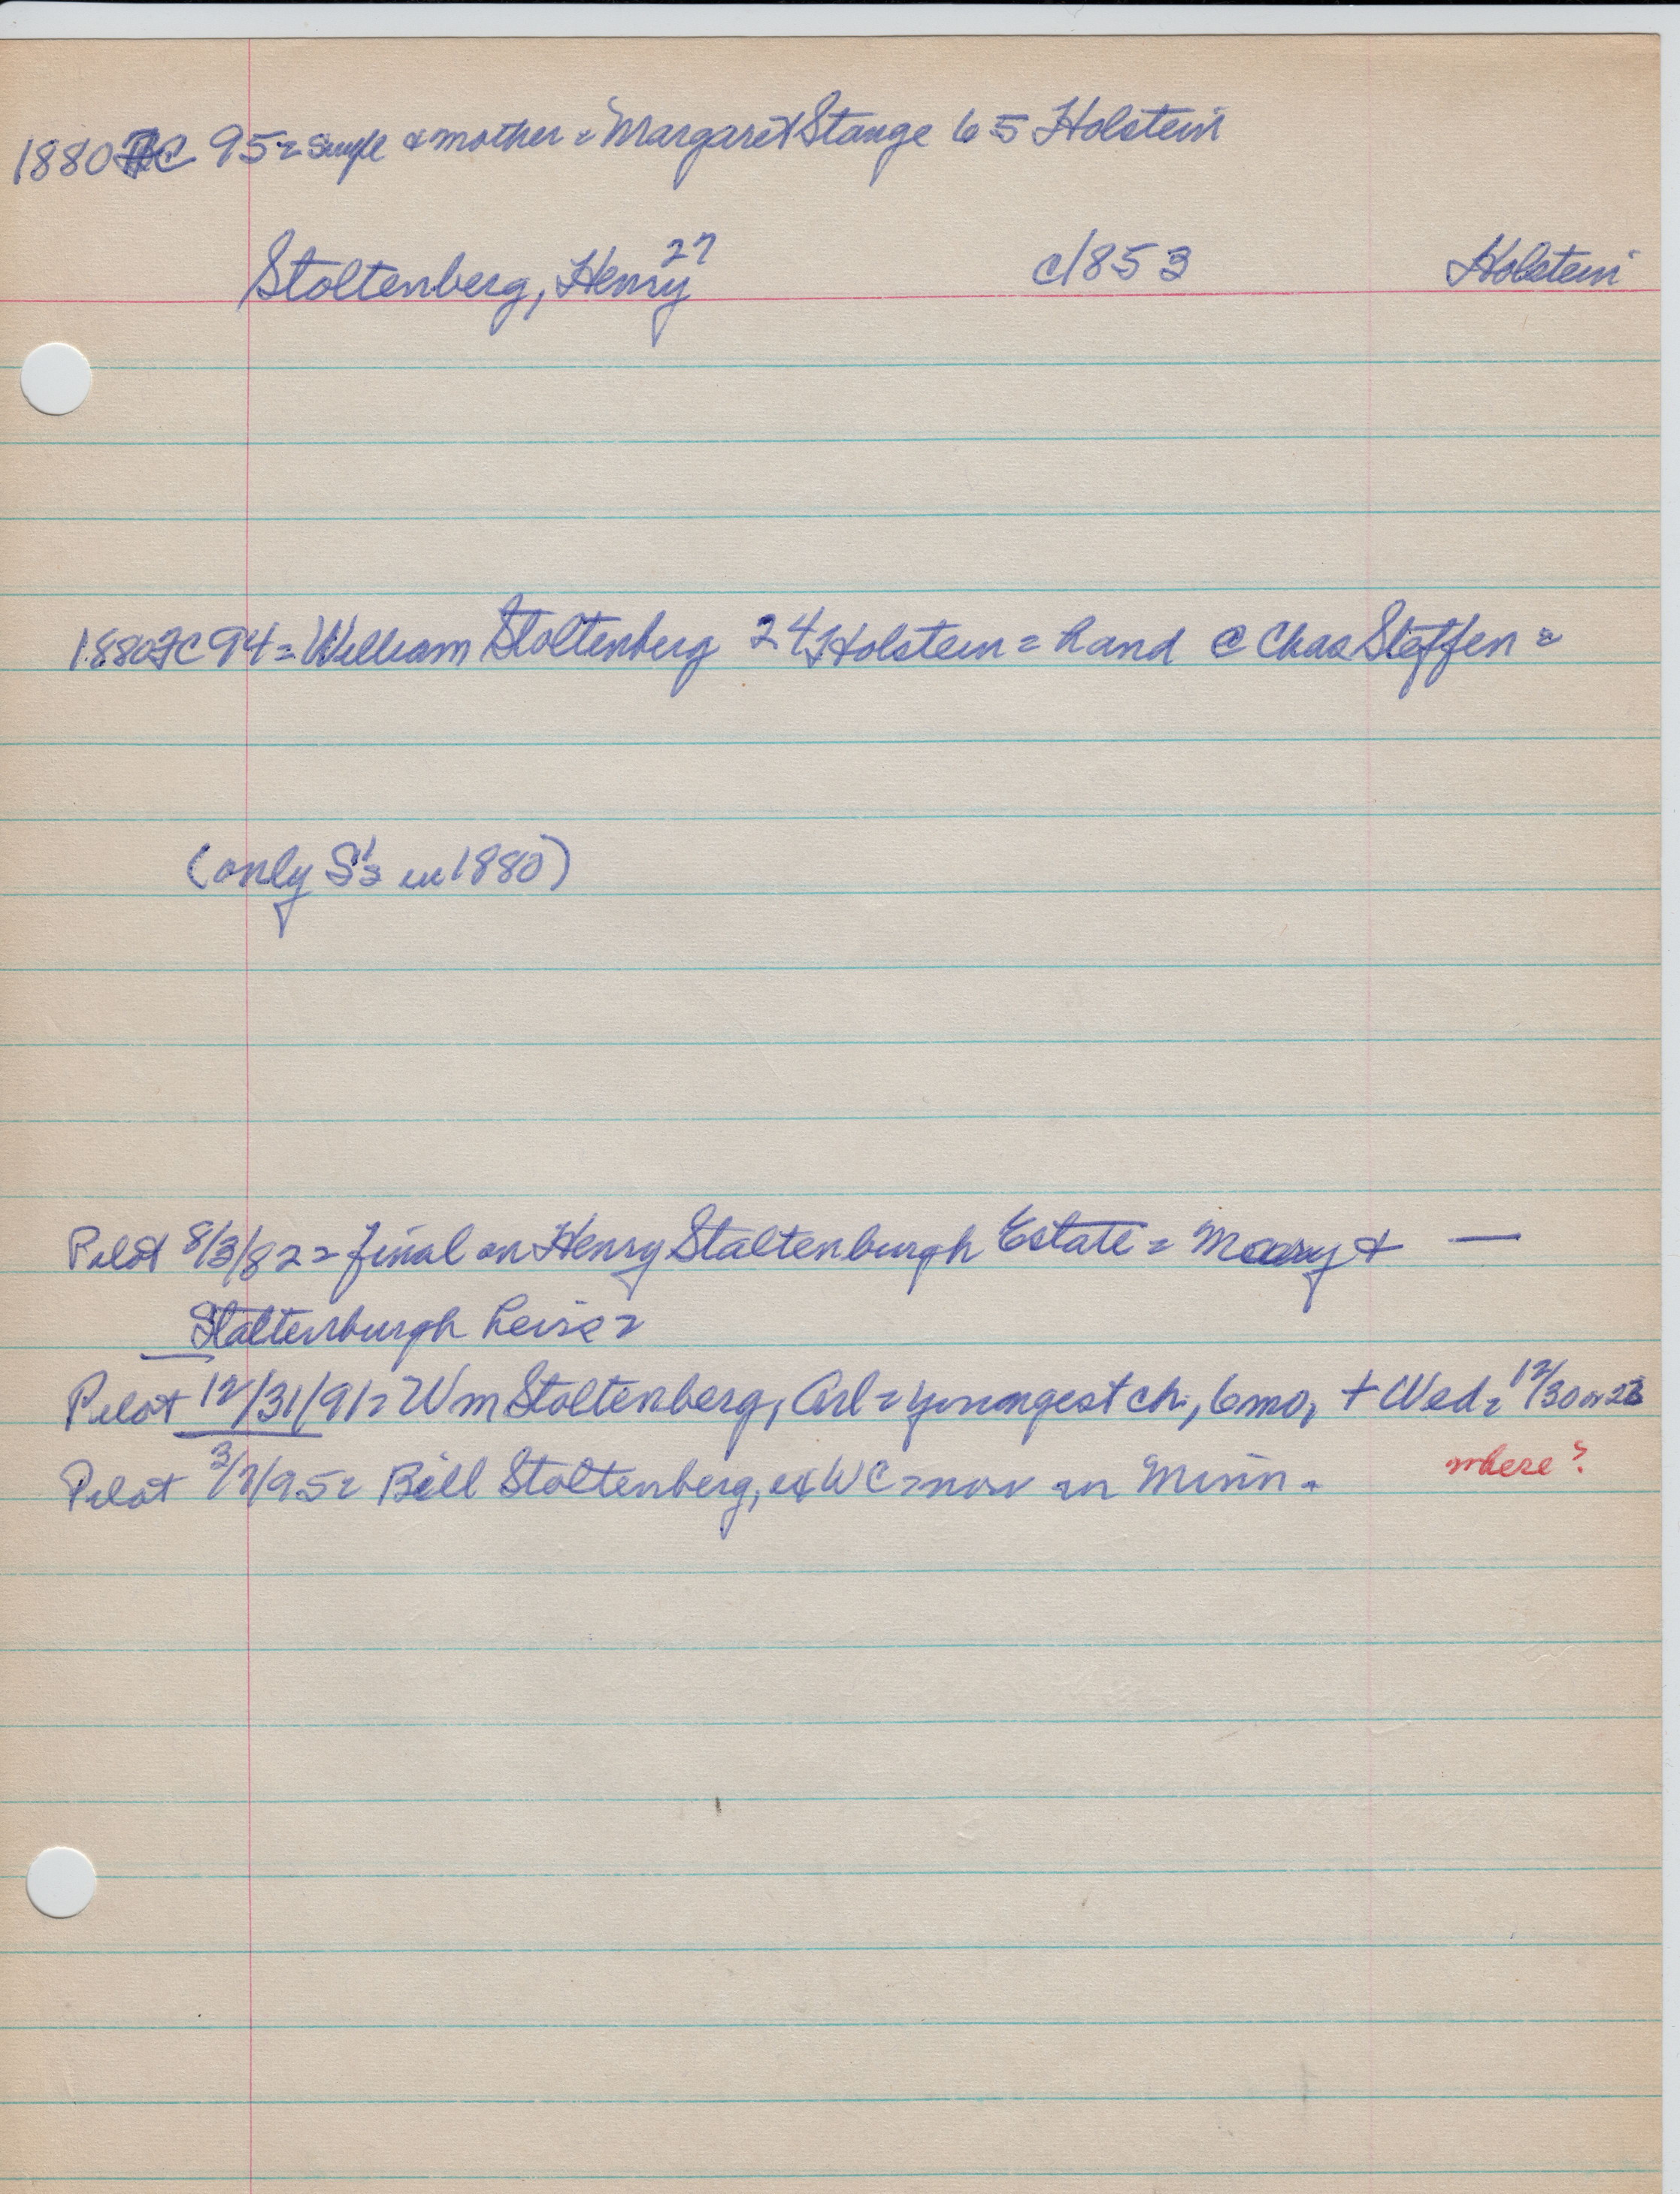 1880 FC 95 = Single & mother = Margaret Stange 65 Holstein
Stoltenberg, Henry 27 c1853 Holstein
1880 FC 94 = William Stoltenberg 24 Holstein = hand @ Chas Steffen =
(only S's in 1880)
Pilot 8/3/82 = final on Henry Staltenburgh Estate = Mary & —
Staltenburgh heirs =
Pilot 12/31/91 = Wm Stoltenberg, Arl = youngest ch, 6 mo, + Wed = 12/30 or 23
Pilot 3/7/95 = Bill Stoltenberg, ex WC = now in Minn.
where?